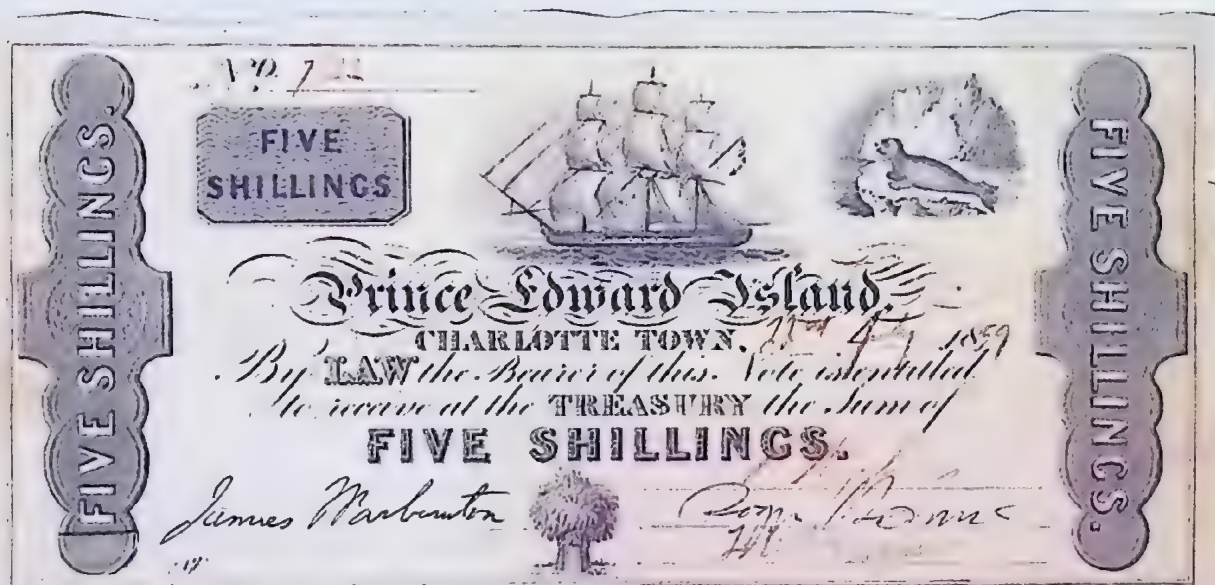 FIVE SHILLINGS.
No. 7
FIVE
SHILLINGS
Prince Edward Island.
CHARLOTTE TOWN. 1859
By LAW the Bearer of this Note is entitled
to receive at the TREASURY the Sum of
FIVE SHILLINGS.
James Warburton
FIVE SHILLINGS.